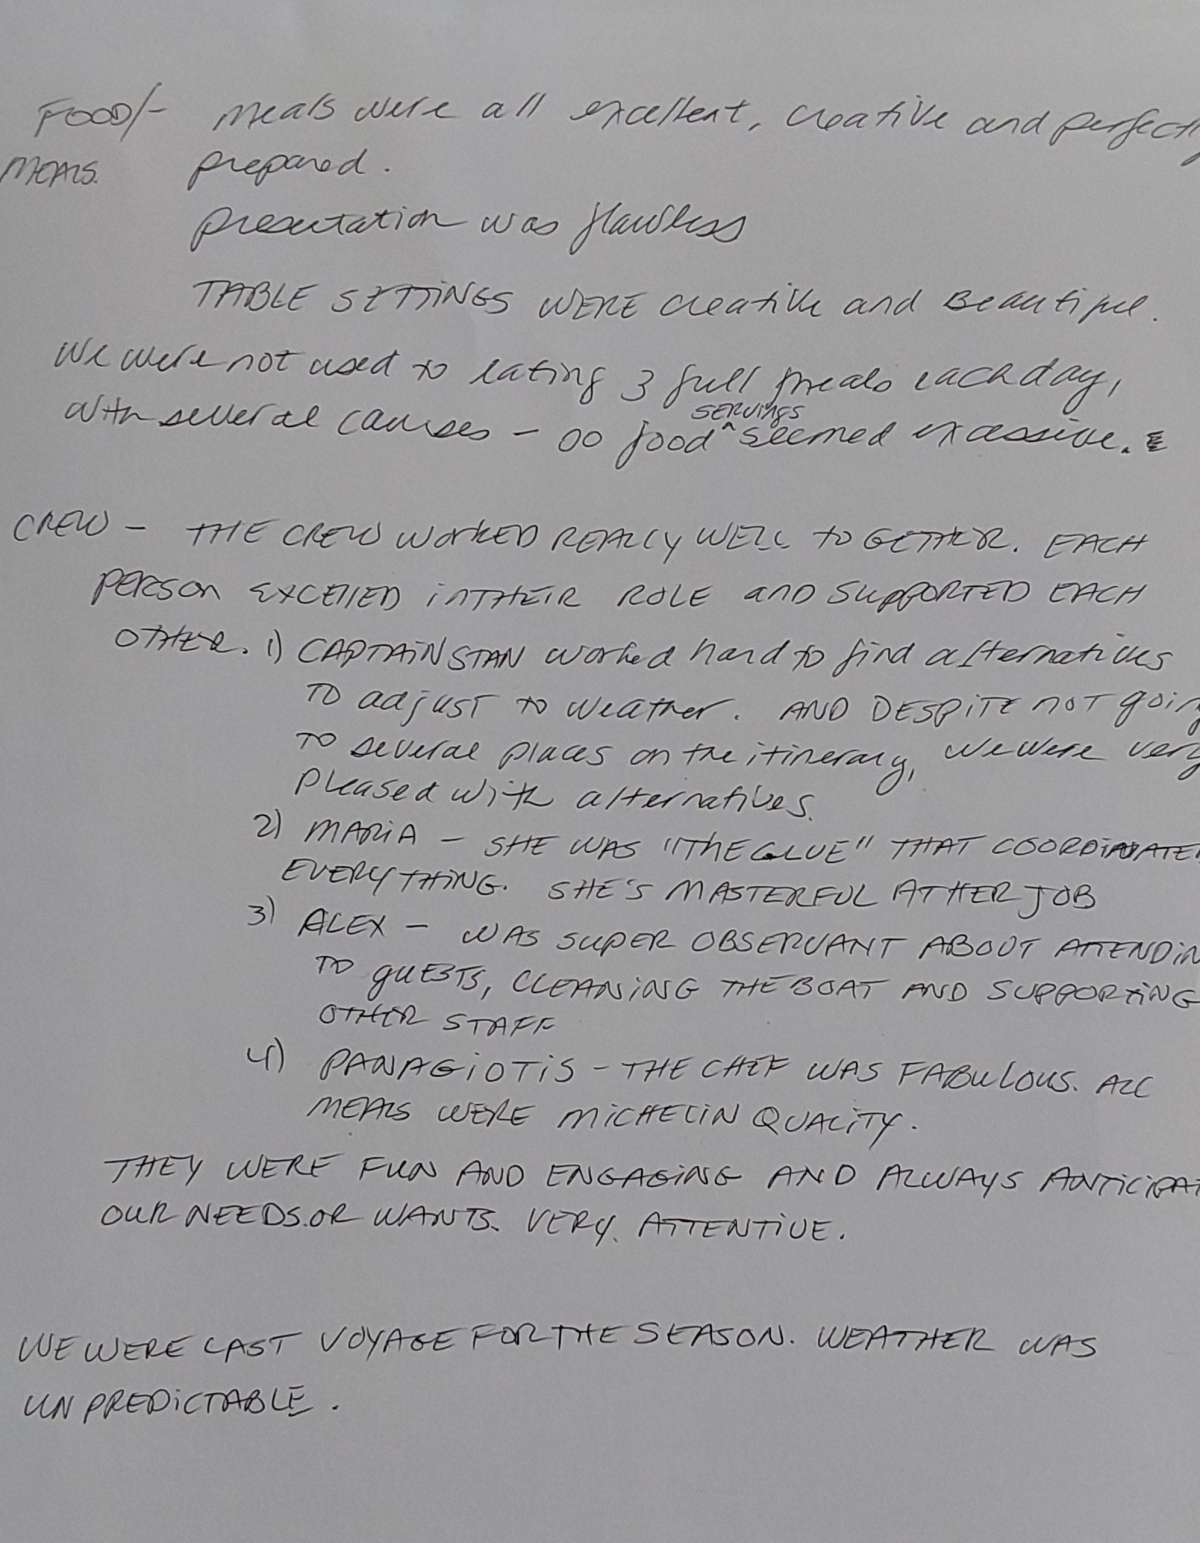 FOOD/- meals were all excellent, creative and perfectly
MEALS. prepared.
presentation was flawless
TABLE SETTINGS WERE creative and Beautiful.
We were not used to eating 3 full meals each day,
SERVINGS
with several courses - so food ^ seemed excessive.
CREW - THE CREW WORKED REALLY WELL TO GETHER. EACH
person EXCELLED IN THEIR ROLE and SUPPORTED EACH
OTHER. 1) CAPTAIN STAN worked hard to find alternatives
TO adjust to weather. AND DESPITE NOT goin
TO several places on the itinerary, we were very
pleased with alternatives.
2) MARIA - SHE WAS "THE GLUE" THAT COORDINATE
EVERYTHING. SHE'S MASTERFUL AT HER JOB
3) ALEX - WAS SUPER OBSERVANT ABOUT ATTENDIN
TO GUESTS, CLEANING THE BOAT AND SUPPORTING
OTHER STAFF
4) PANAGIOTIS - THE CHEF WAS FABULOUS. ALL
MEALS WERE MICHELIN QUALITY.
THEY WERE FUN AND ENGAGING AND ALWAYS ANTICIPAT
OUR NEEDS. OR WANTS. VERY. ATTENTIVE.
WE WERE LAST VOYAGE FOR THE SEASON. WEATHER WAS
UNPREDICTABLE.